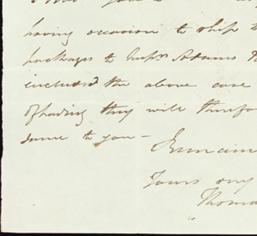 having occasion to ship t
packages to Messrs Adams
included the above case
of having they will therefor
same to you –
Remain
Yours
Thoma